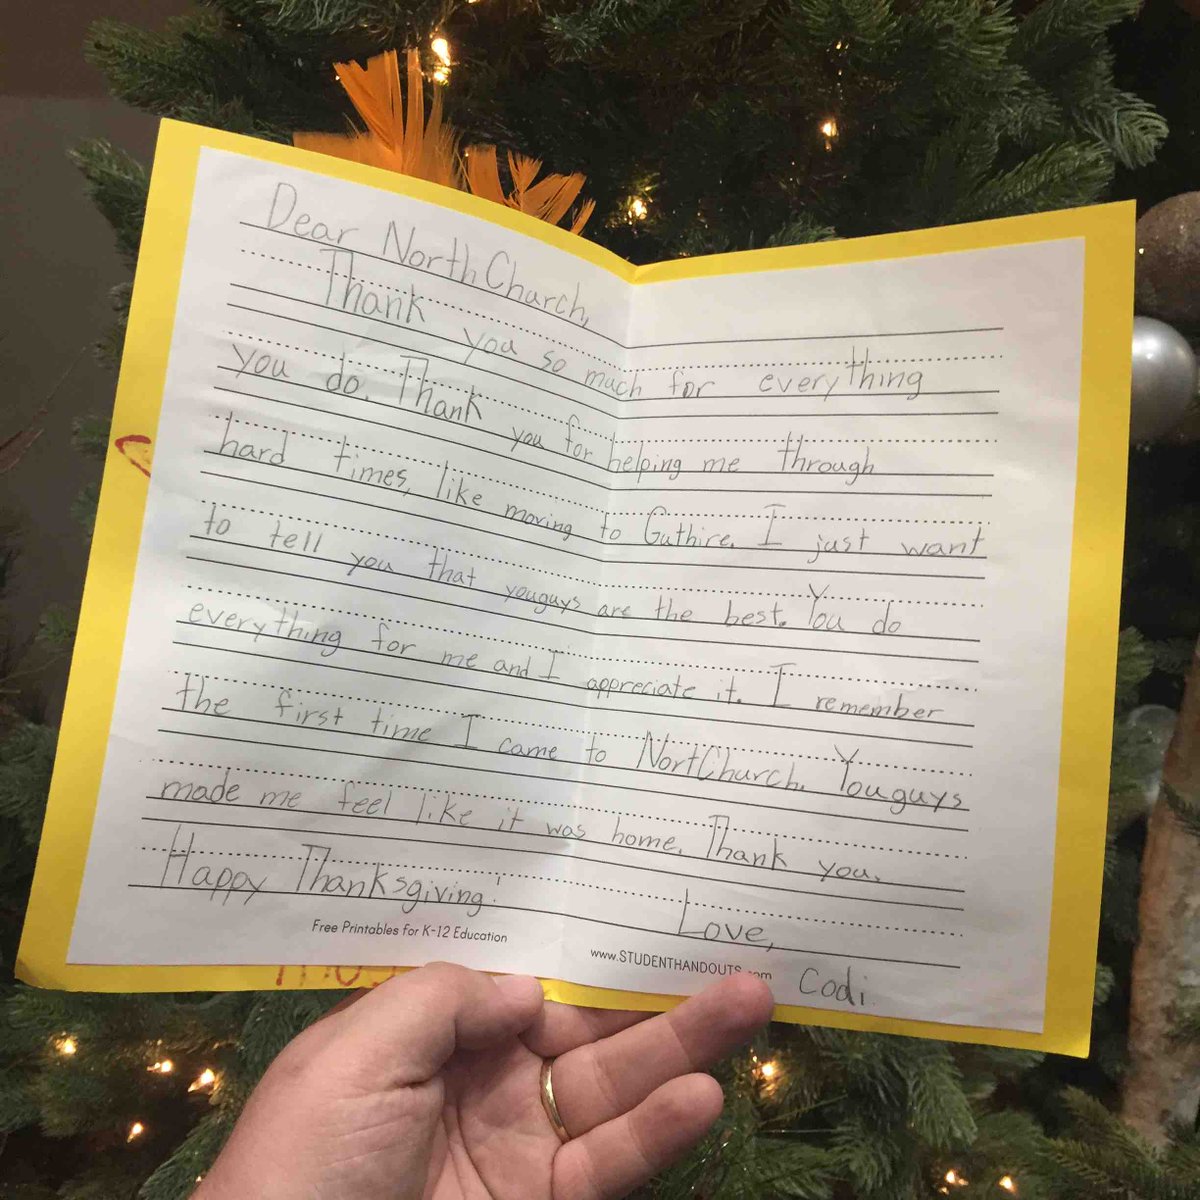 Dear NorthChurch,
Thank you so much for everything
you do. Thank you for helping me through
hard times, like moving to Guthire. I just want
to tell you that youguys are the best. You do
everything for me and I appreciate it. I remember
the first time I came to NortChurch. Youguys
made me feel like it was home. Thank you.
Happy Thanksgiving!
Love,
Codi
Free Printables for K-12 Education
www.STUDENTHANDOUTS.com